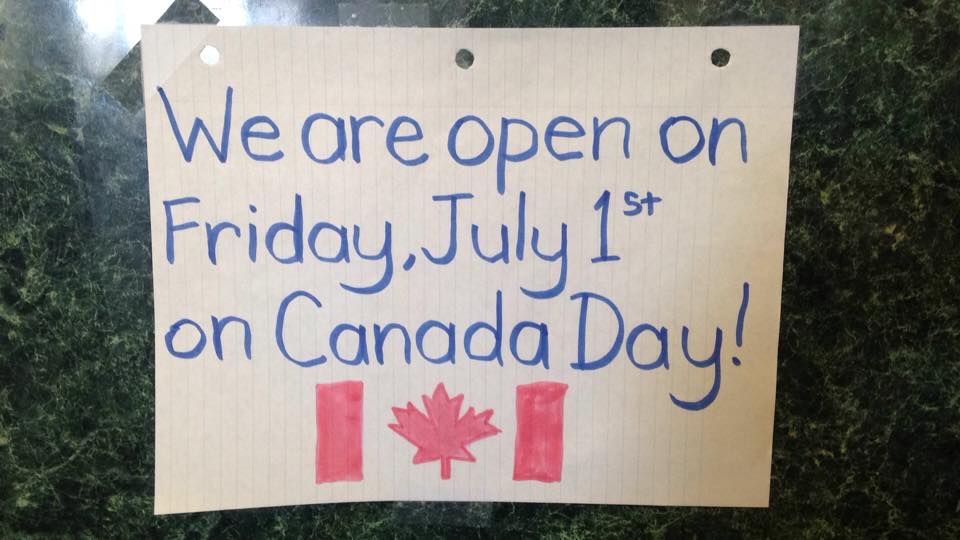 We are open on
Friday, July 1st
on Canada Day!